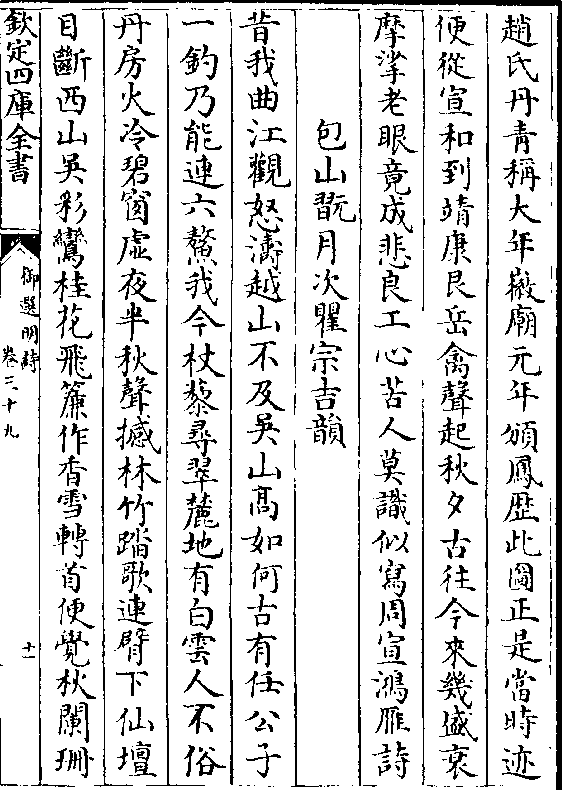 趙氏丹青稱大年嶶廟元年頒鳳歴此圖正是當時迹
便從宣和到靖康艮岳禽聲起秋夕古往今來幾盛衰
摩挲老眼竟成悲良工心苦人莫識似寫周宣鴻雁詩
包山翫月次瞿宗吉韻
昔我曲江觀怒濤越山不及吳山髙如何古有任公子
一釣乃能連六鰲我今杖藜尋翠麓地有白雲人不俗
丹房火冷碧窗虛夜半秋聲撼林竹踏歌連臂下仙壇
目斷西山吳彩鸞桂花飛簾作香雪轉首便覺秋闌珊
欽定四庫全書
御選明詩
卷三十九
十一